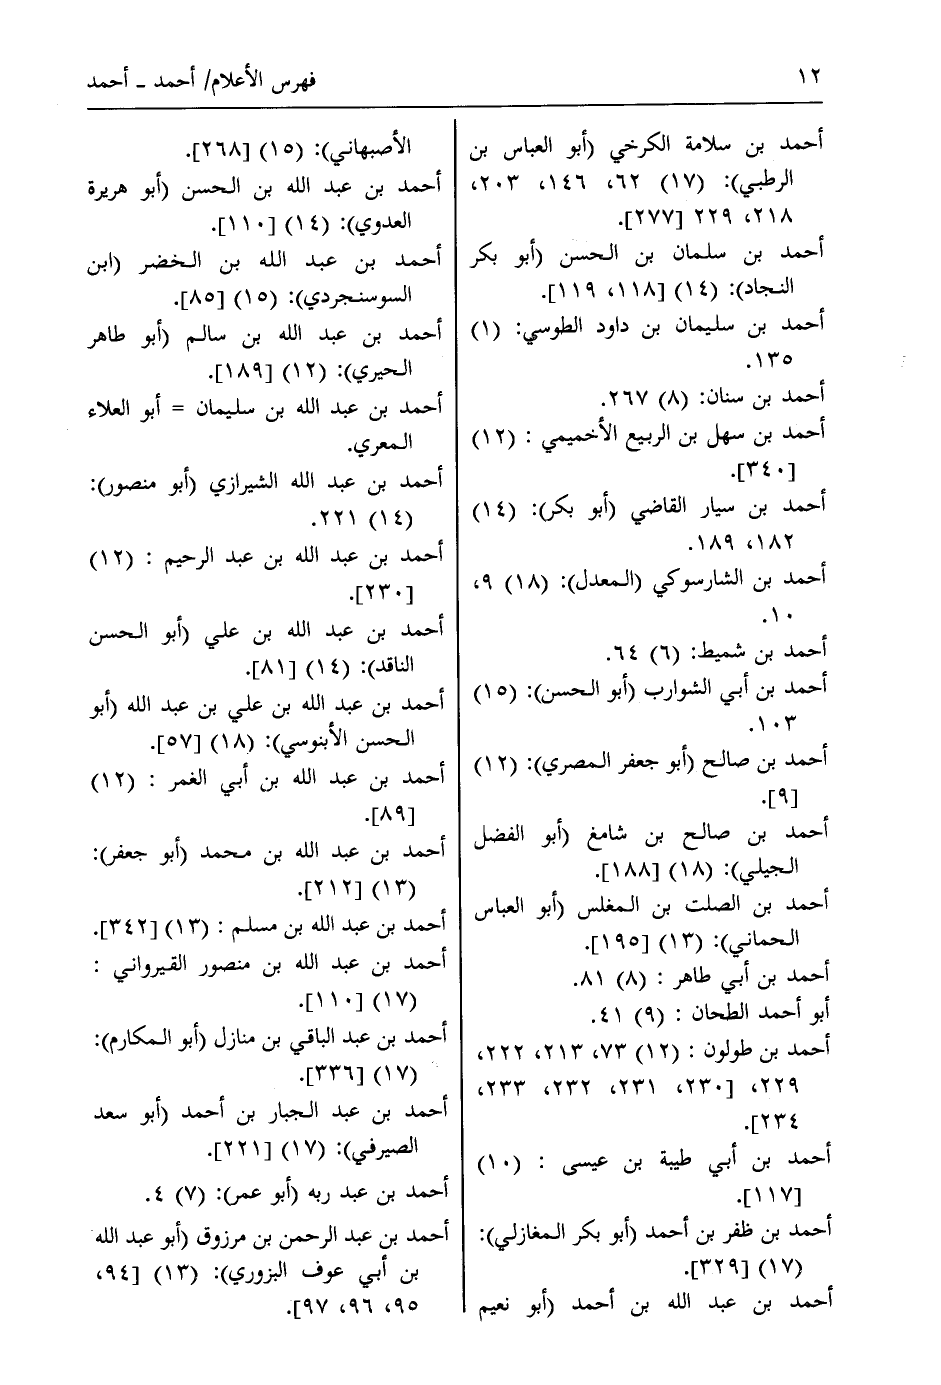 ١٢
فهرس الأعلام/ أحمد ـ أحمد
أحمد بن سلامة الكرخي (أبو العباس بن
الرطبي): (١٧) ٦٢، ١٤٦، ٢٠٣،
٢١٨، ٢٢٩ [٢٧٧].
أحمد بن سلمان بن الحسن (أبو بكر
النجاد): (١٤) [١١٨، ١١٩].
أحمد بن سليمان بن داود الطوسي: (١)
١٣٥.
أحمد بن سنان: (٨) ٢٦٧.
أحمد بن سهل بن الربيع الأخميمي : (١٢)
[٣٤٠].
أحمد بن سيار القاضي (أبو بكر): (١٤)
١٨٢، ١٨٩.
أحمد بن الشارسوكي (المعدل): (١٨) ٩،
١٠.
أحمد بن شميط: (٦) ٦٤.
أحمد بن أبي الشوارب (أبو الحسن): (١٥)
١٠٣.
أحمد بن صالح (أبو جعفر المصري): (١٢)
[٩].
أحمد بن صالح بن شامغ (أبو الفضل
الجيلي): (١٨) [١٨٨].
أحمد بن الصلت بن المغلس (أبو العباس
الحماني): (١٣) [١٩٥].
أحمد بن أبي طاهر : (٨) ٨١.
أبو أحمد الطحان : (٩) ٤١.
أحمد بن طولون : (١٢) ٧٣، ٢١٣، ٢٢٢،
٢٢٩، [٢٣٠، ٢٣١، ٢٣٢، ٢٣٣،
٢٣٤].
أحمد بن أبي طيبة بن عيسى : (١٠)
[١١٧].
أحمد بن ظفر بن أحمد (أبو بكر المغازلي):
(١٧) [٣٢٩].
أحمد بن عبد الله بن أحمد (أبو نعيم
الأصبهاني): (١٥) [٢٦٨].
أحمد بن عبد الله بن الحسن (أبو هريرة
العدوي): (١٤) [١١٠].
أحمد بن عبد الله بن الخضر (ابن
السوسنجردي): (١٥) [٨٥].
أحمد بن عبد الله بن سالم (أبو طاهر
الحيري): (١٢) [١٨٩].
أحمد بن عبد الله بن سليمان = أبو العلاء
المعري.
أحمد بن عبد الله الشيرازي (أبو منصور):
(١٤) ٢٢١.
أحمد بن عبد الله بن عبد الرحيم : (١٢)
[٢٣٠].
أحمد بن عبد الله بن علي (أبو الحسن
الناقد): (١٤) [٨١].
أحمد بن عبد الله بن علي بن عبد الله (أبو
الحسن الأبنوسي): (١٨) [٥٧].
أحمد بن عبد الله بن أبي الغمر : (١٢)
[٨٩].
أحمد بن عبد الله بن محمد (أبو جعفر):
(١٣) [٢١٢].
أحمد بن عبد الله بن مسلم : (١٣) [٣٤٢].
أحمد بن عبد الله بن منصور القيرواني :
(١٧) [١١٠].
أحمد بن عبد الباقي بن منازل (أبو المكارم):
(١٧) [٣٣٦].
أحمد بن عبد الجبار بن أحمد (أبو سعد
الصيرفي): (١٧) [٢٢١].
أحمد بن عبد ربه (أبو عمر): (٧) ٤.
أحمد بن عبد الرحمن بن مرزوق (أبو عبد الله
بن أبي عوف البزوري): (١٣) [٩٤،
٩٥، ٩٦، ٩٧].